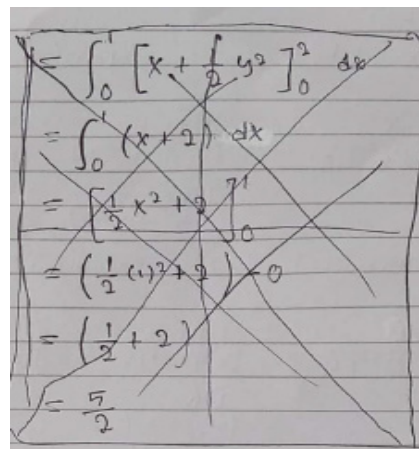 = ∫₀¹ [x + 1/2 y²]₀² dx
= ∫₀¹ (x + 2) dx
= [1/2 x² + 2]₀¹
= (1/2 (1)² + 2) - 0
= (1/2 + 2)
= 5/2